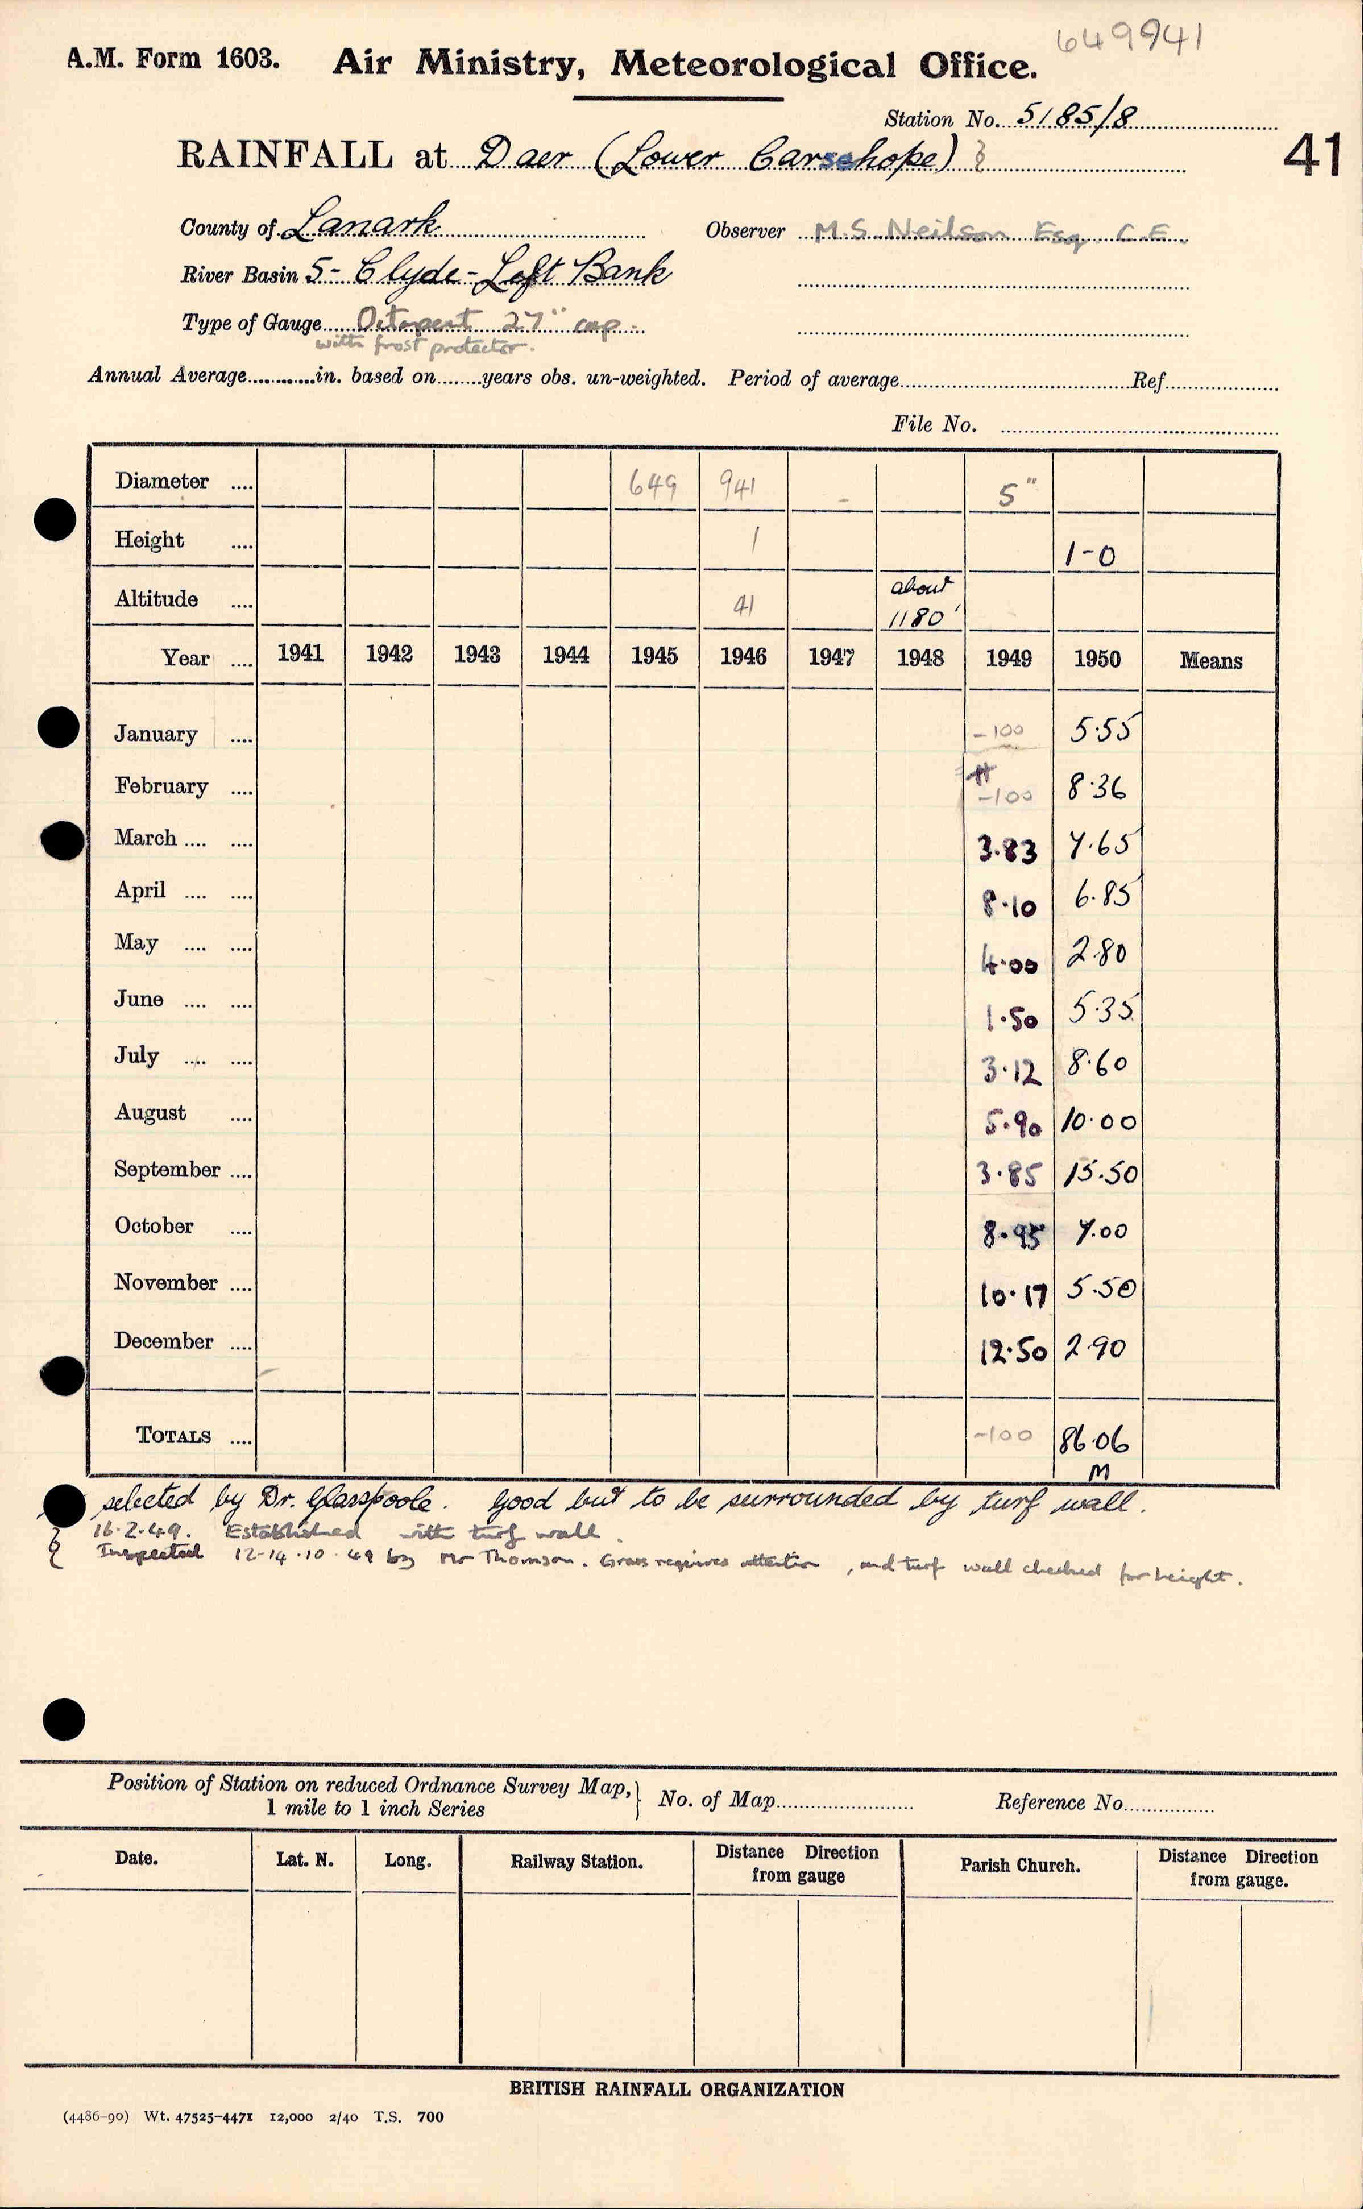 649941
A.M. Form 1603. Air Ministry, Meteorological Office.
Station No. 5185/8
RAINFALL at Daer (Lower Carsehope) }
41
County of Lanark Observer M.S. Neilson Esq. C.E.
River Basin 5- Clyde - Left Bank
Type of Gauge Octapent 27" cap.
with frost protector.
Annual Average............in. based on........years obs. un-weighted. Period of average Ref.
File No.
Diameter .... 649 941 - 5"
Height .... 1 1-0
Altitude .... 41 about 1180'
Year .... 1941 1942 1943 1944 1945 1946 1947 1948 1949 1950 Means
January .... -100 5.55
February .... # -100 8.36
March .... .... 3.83 7.65
April .... .... 8.10 6.85
May .... .... 4.00 2.80
June .... .... 1.50 5.35
July .... .... 3.12 8.60
August .... 5.90 10.00
September .... 3.85 15.50
October .... 8.95 7.00
November .... 10.17 5.50
December .... 12.50 2.90
TOTALS .... -100 86.06
M
selected by Dr. Glasspoole. Good but to be surrounded by turf wall.
16.2.49. Established with turf wall.
Inspected 12-14.10.49 by Mr Thomson. Grass requires attention, and turf wall checked for height.
Position of Station on reduced Ordnance Survey Map, } No. of Map Reference No.
1 mile to 1 inch Series
Date. Lat. N. Long. Railway Station. Distance Direction from gauge Parish Church. Distance Direction from gauge.
BRITISH RAINFALL ORGANIZATION
(4486-90) Wt. 47525-4471 12,000 2/40 T.S. 700